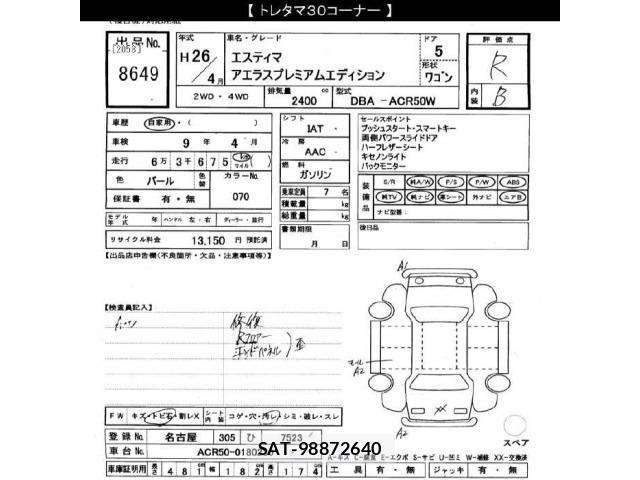 【トレタマ30コーナー】
出品No.
[2058]
8649
年式
H26/4月
車名・グレード
エスティマ
アエラスプレミアムエディション
ドア
5
形状
ワゴン
2WD・4WD
排気量
2400 cc
型式
DBA-ACR50W
評価点
R
内装
B
車歴 自家用・( )
車検 9年 4月
走行 6万3千675 km マイル ( )
色 パール 色替
カラーNo.
070
保証書 有・無
モデル年式 年 ハンドル 左・右 ディーラー・並行
リサイクル料金 13,150 円 預託済
シフト
IAT
冷房
AAC
燃料
ガソリン
乗車定員 7 名
積載量 kg
総重量 kg
書類期限
月 日
セールスポイント
プッシュスタート・スマートキー
両側パワースライドドア
ハーフレザーシート
キセノンライト
バックモニター
装備品
S/R 純A/W P/S P/W ABS
純TV 純ナビ 革シート 外ナビ エアB
ナビ型番:
後日品
【出品店申告欄(不良箇所・欠品・注意事項等)】
【検査員記入】
修復
Rフロアー
エンドパネル
歪
A1
A2
XX
A2
スペア
FW キズ・トビ石・割レX シート内装 コゲ・穴・汚レ・シミ・破レ・スレ
登録No. 名古屋 305 ひ 7523
車台No. ACR50-0180
SAT-98872640
A-キズ E-エクボ S-サビ U-凹ミ W-補修 XX-交換済
車庫証明用 長さ 481 幅 182 高さ 174
工具 有・無 ジャッキ 有・無